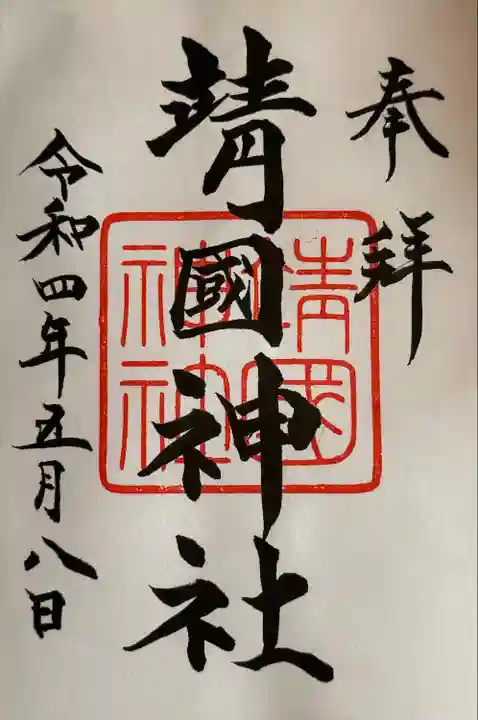 奉拜
靖國神社
令和四年五月八日
靖國神社